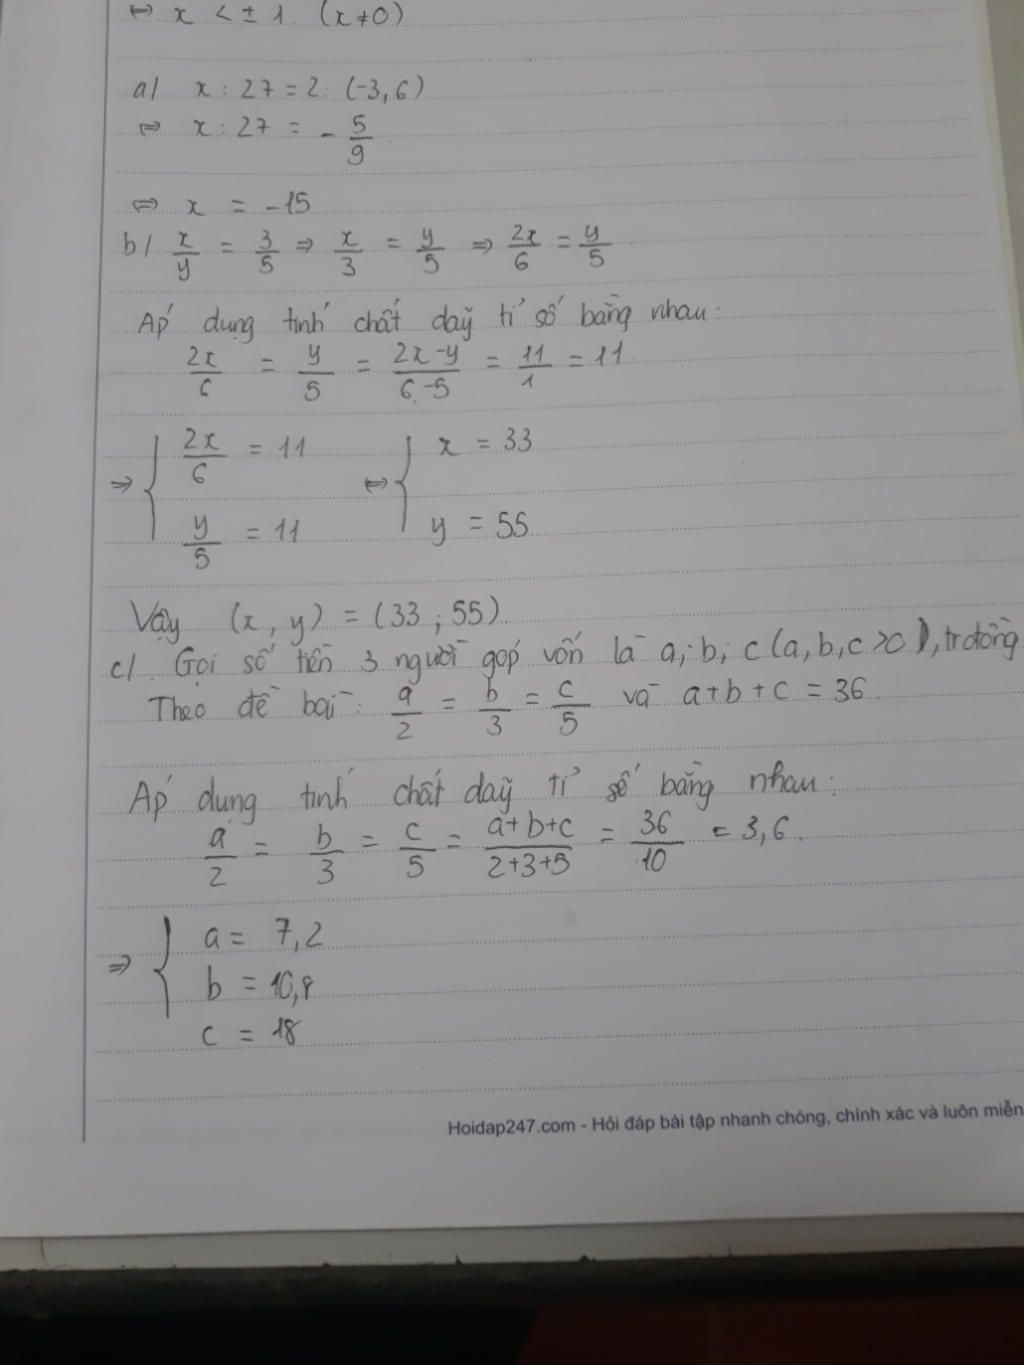 ⇔ x < ± 1 (x≠0)
a) x : 27 = 2 : (-3,6)
⇔ x : 27 = - 5/9
⇔ x = -15
b) x/y = 3/5 ⇒ x/3 = y/5 ⇒ 2x/6 = y/5
Áp dụng tính chất dãy tỉ số bằng nhau:
2x/6 = y/5 = 2x-y/6-5 = 11/1 = 11
⇒ { 2x/6 = 11 ⇔ { x = 33
y/5 = 11 y = 55
Vậy (x, y) = (33 ; 55)
c) Gọi số tiền 3 người góp vốn là a; b; c (a, b, c >0), trđồng
Theo đề bài: a/2 = b/3 = c/5 và a+b+c = 36
Áp dụng tính chất dãy tỉ số bằng nhau:
a/2 = b/3 = c/5 = a+b+c/2+3+5 = 36/10 = 3,6.
⇒ { a = 7,2
b = 10,8
c = 18
Hoidap247.com - Hỏi đáp bài tập nhanh chóng, chính xác và luôn miễn